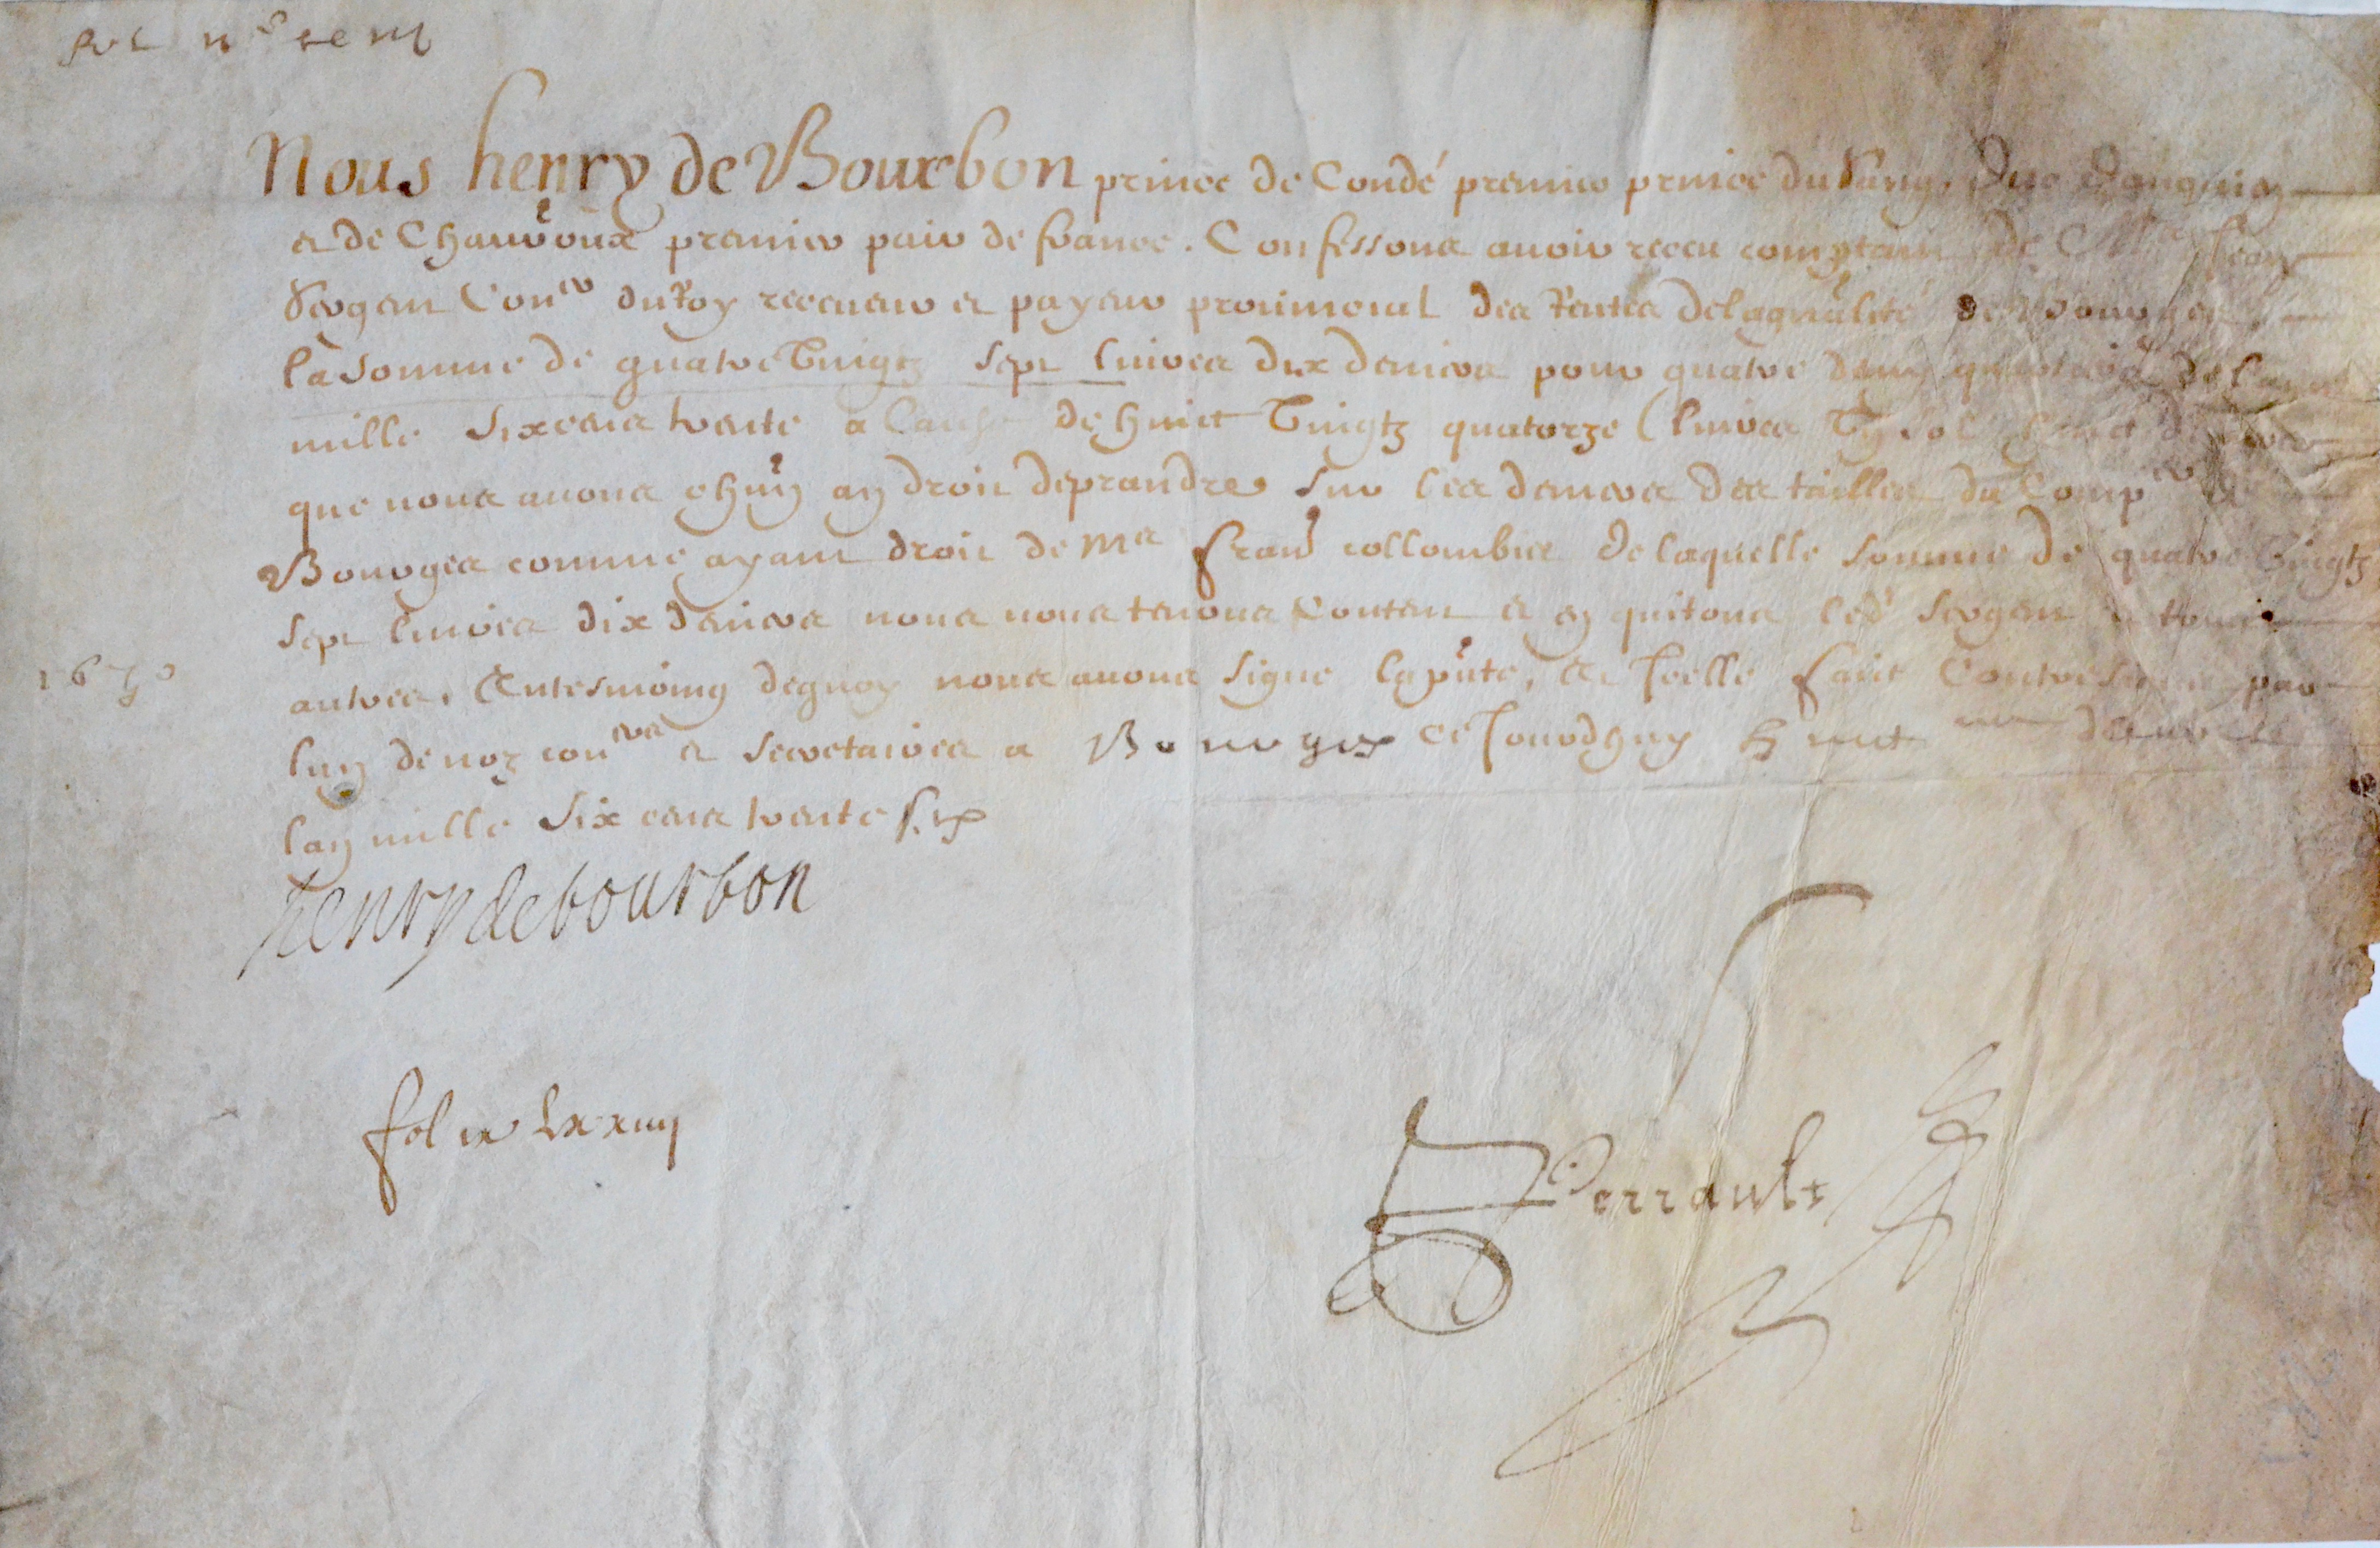 Nous henry de Bourbon prince de Condé premier prince du Sang, Duc Danguien
et de Chaũroux premier pair de france. Confessons avoir receu comptant de Me Jean
Sergent Coner du Roy receveur et payeur provincial des Rentes delagñalité de Bourges
la somme de quatre vingtz sept livres dix deniers pour quatre demy quartiers de lannee
mille six cens trente a cause de huict vingtz quatorze livres sol
que nous avons chũn an droit deprandre sur les deniers des tailles du
Bourges comme ayant droit de Me Fran collombier de laquelle somme de quatre vingtz
sept livres dix deniers nous nous tenons content et en quitons led Sergent et tous
autres, En tesmoing dequoy nous avons signe la pñte, et Icelle faict Contresigner par
1630
lun de noz coners et secretaires a Bourges ce Jourdhuy huict
lan mille six cens trente six
henry de bourbon
fol ix lxxiiij
Perrault